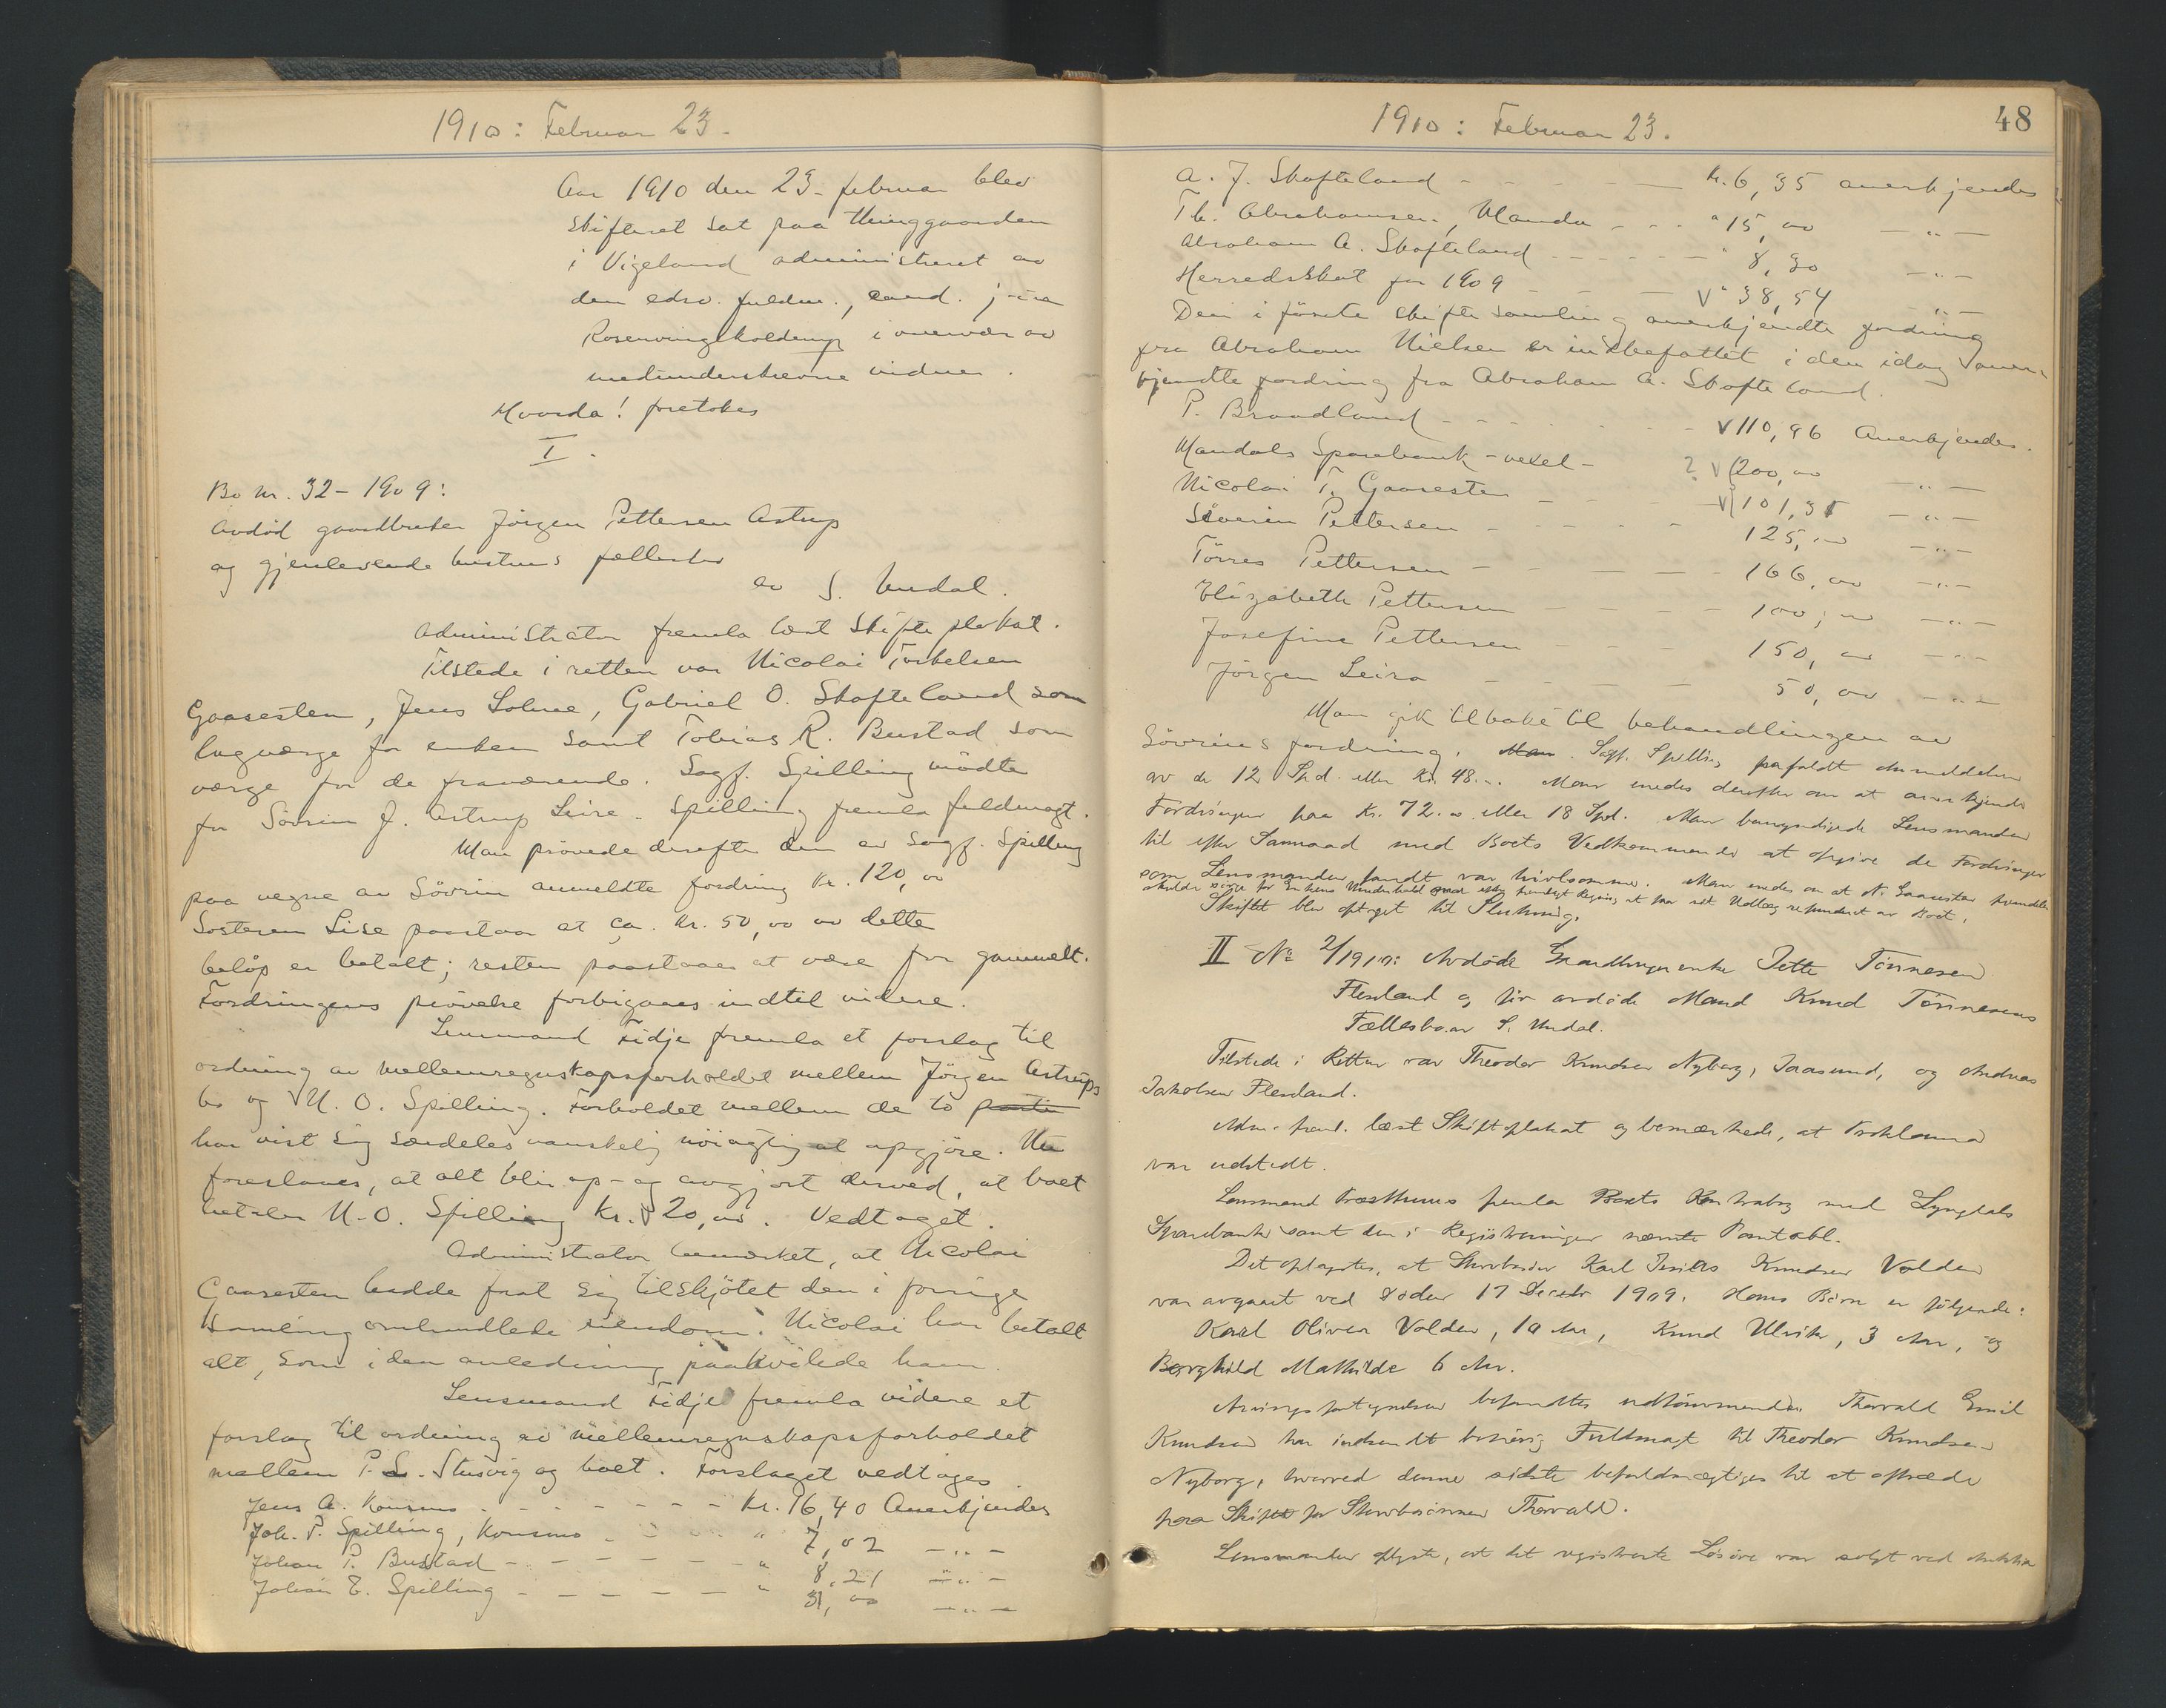 1910: Februar 23.
Aar 1910 den 23. februar blev
skifteret sat paa thinggaarden
i Vigeland administreret av
den edsv. fuldm., cand. jur.
Rosenvinge Kolderup i overvær av
medunderskrevne vidner.
Hvorda! foretokes
I.
Bo nr. 32 - 1909:
Avdød gaardbruker Jörgen Pettersen Astrup
og gjenlevende hustrus fællesbo
av S. Undal.
Administrator fremla læst skifteplakat.
Tilstede i retten var Nicolai Torkelsen
Gaaresten, Jens Solne, Gabriel O. Skofteland som
lagværge for enken samt Tobias R. Bustad som
værge for de fraværende. Sagf. Spilling mödte
for Sövrin J. Astrup Leire. Spilling fremla fuldmagt.
Man prövede derefter den av Sagf. Spilling
paa vegne av Sövrin anmeldte fordring kr. 120,00
Søsteren Lise paastaar at ca. kr. 50,00 av dette
beløp er betalt; resten paastaaes at være for gammelt.
Fordringens prövelse forbigaaes indtil videre.
Lensmand Fidje fremla et forslag til
ordning av mellemregnskapsforholdet mellem Jörgen Astrups
bo og N. O. Spilling. Forholdet mellem de to parter
har vist sig særdeles vanskelig nöiagtig at opgjöre. Nu
foreslaaes, at alt blir op- og avgjort derved, at boet
betaler N. O. Spilling kr. 20,00. Vedtaget.
Administrator bemærket, at Nicolai
Gaaresten hadde faat sig tilskjötet den i forrige
samling omhandlede eiendom. Nicolai har betalt
alt, som i den anledning paahvilede ham.
Lensmand Fidje fremla videre et
forslag til ordning av mellemregnskapsforholdet
mellem P. L. Stusvig og boet. Forslaget vedtages
Jens A. Konsmo - - - kr. 16,40 Anerkjendes
Joh. P. Spilling, Konsmo - - - " 7,02 -"-
Johan P. Bustad - - - " 8,21 -"-
Johan E. Spilling - - - " 31,00 -"-
1910: Februar 23.
48
A. J. Skofteland - - - kr. 6,35 anerkjendes
Th. Abrahamsen, Mandal - - - " 15,00 -"-
Abraham A. Skofteland - - - " 8,30 -"-
Herredsskat for 1909 - - - V " 38,54 -"-
Den i förste skiftesamling anerkjendte fordring
fra Abraham Nielsen er indbefattet i den idag aner-
kjendte fordring fra Abraham A. Skofteland.
P. Braadland - - - V 110,96 Anerkjendes.
Mandals Sparebank - vexel - ? V 200,00 -"-
Nicolai T. Gaaresten - - - V 101,35 -"-
Söverin Pettersen - - - 125,00 -"-
Törres Pettersen - - - 166,00 -"-
Elizabeth Pettersen - - - 100,00 -"-
Josefine Pettersen - - - 150,00 -"-
Jörgen Leira - - - 50,00 -"-
Man gik tilbake til behandlingen av
Sövrins fordring. Man. Sagf. Spilling frafaldt Anmeldelsen
av de 12 Spd. eller Kr. 48.-. Man enedes derefter om at anerkjende
Fordringen paa Kr. 72.00 eller 18 Spd. Man bemyndigede Lensmanden
til efter Samraad med Boets Vedkommende at opgive de Fordringer
som Lensmanden fandt var tvivlsomme. Man enedes om at N. Gaaresten fremdeles
skulde sörge for Enkens Underhold mod efter fremlagt Regning at faa sit Udlæg refunderet av Boet.
Skiftet blev optaget til Slutning.
II No 2/1910: Avdöde Gaardbrugerenke Jette Tönnesen
Flesland og för avdöde Mand Knud Tönnesens
Fællesbo av S. Undal.
Tilstede i Retten var Theodor Knudsen Nyborg, Saasund, og Andreas
Jakobsen Flesland.
Adm. freml. læst Skifteplakat og bemærkede, at Proklama
var udstedt.
Lensmand Præsthuus fremla Boets Kontrabog med Lyngdals
Sparebank samt den i Registreringen nævnte Pantobl.
Det oplystes, at Stervbosön Karl Knudsen Volden
var avgaaet ved Döden 17 Decbr 1909. Hans Börn er fölgende:
Karl Oliver Volden, 10 Aar, Knud Ulrik, 3 Aar, og
Borghild Mathilde 6 Aar.
Arvingsfortegnelsen befandtes udtömmende. Thorvald Emil
Knudsen har indsendt behörig Fuldmagt til Theodor Knudsen
Nyborg, hvorved denne sidste befuldmægtiges til at optræde
paa Skiftet for Stervbosönnen Thorvald.
Lensmanden oplyste, at det registrerte Lösöre var solgt ved Auktion